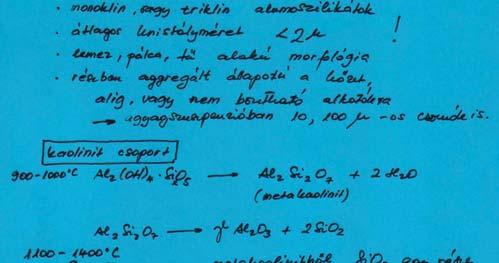 · monoklin, vagy triklin alumoszilikátok
· átlagos kristályméret < 2 μ !
· lemez, pálca, tű alakú morfológia
· részben aggregált állapotú a kőzet,
alig, vagy nem bontható alkotókra
→ agyagszuszpenzióban 10, 100 μ -os csomók is.
kaolinit csoport
900-1000°C Al2(OH)4 · Si2O5 → Al2 Si2 O7 + 2 H2O
(metakaolinit)
Al2 Si2 O7 → γ Al2O3 + 2 SiO2
1100 - 1400°C
metakaolinitből SiO2 egy része